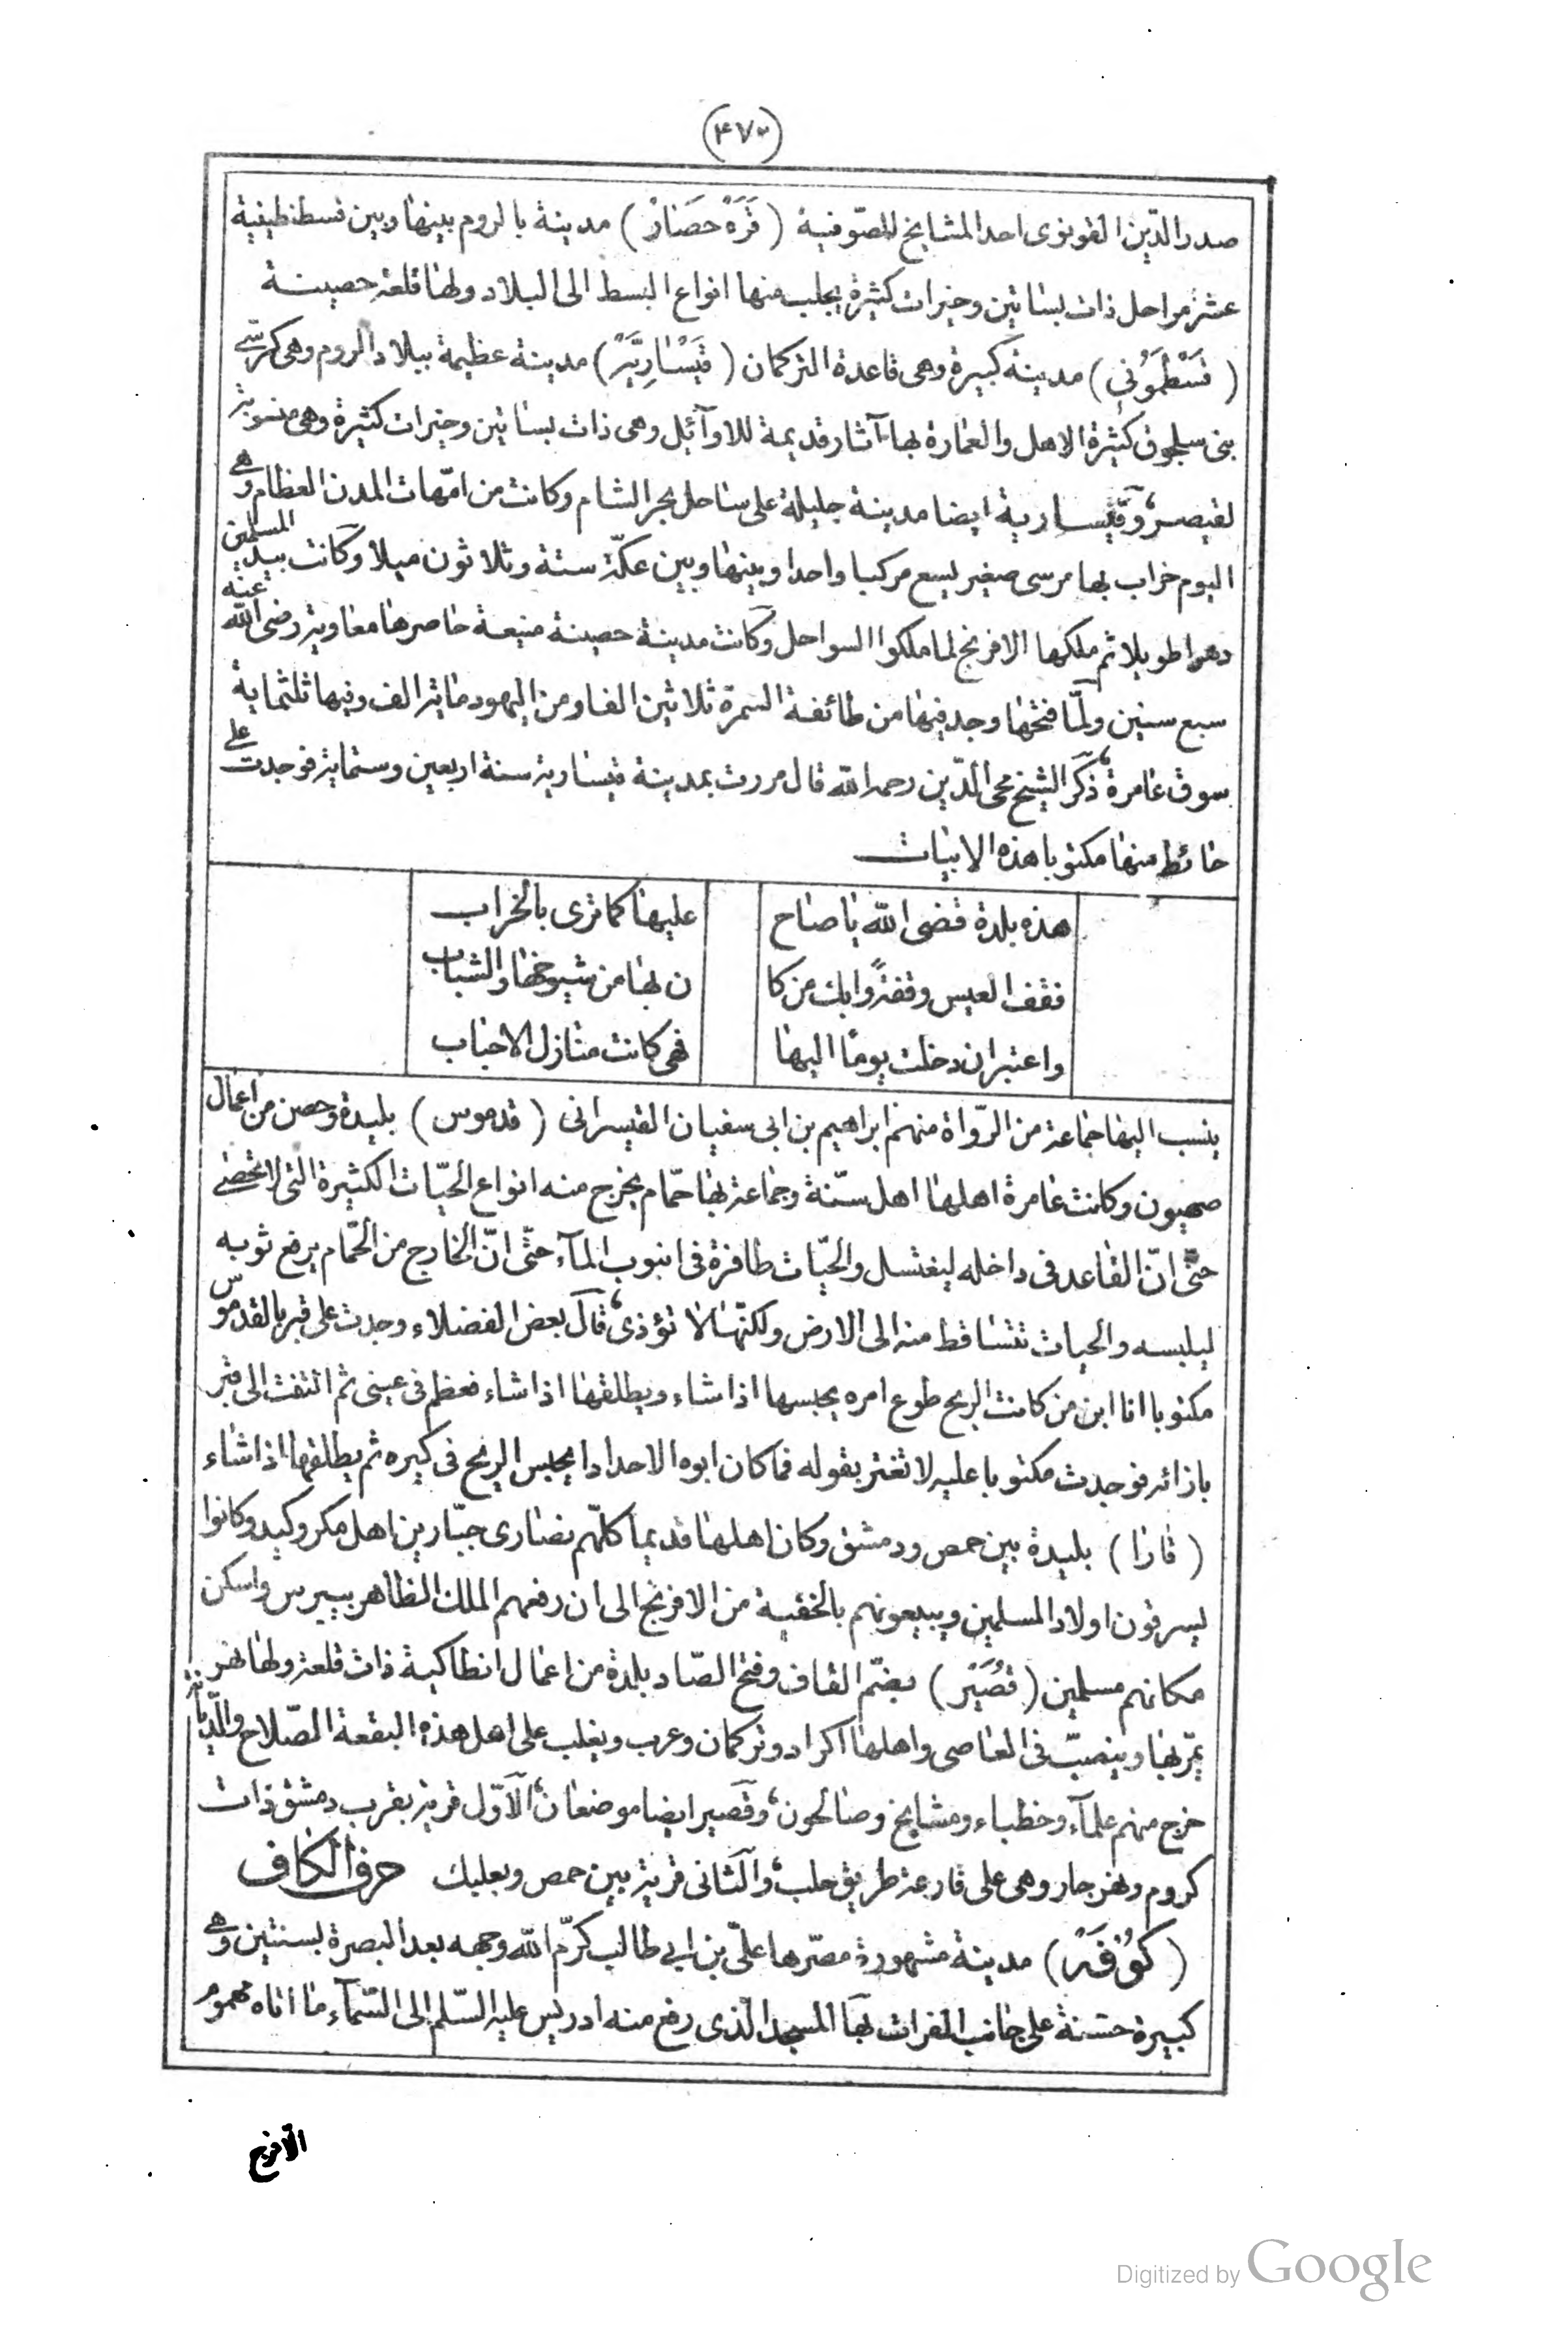 (٤٧٠)
صدر الدّين القونوى احد المشايخ الصّوفية ( قَرَهْ حصَارْ ) مدينة بالروم بينها وبين قسطنطينية
عشر مراحل ذات بساتين وخيرات كثيرة يجلب منها انواع البسط الى البلاد ولها قلعة حصينة
( قسْطَمُونى ) مدينة كبيرة وهى قاعدة التركمان ( قيْسَاريَّهْ ) مدينة عظيمة ببلاد الروم وهى كرسى
بنى سلجوق كثيرة الاهل والعمارة بها آثار قديمة للاوآئل وهى ذات بساتين وخيرات كثيرة وهى منسوبة
لقيصر، وقيسارية ايضا مدينة جليلة على ساحل بحر الشام وكانت من امّهات المدن العظام وهى
اليوم خراب بها مرسى صغير يسع مركبا واحدا وبينها وبين عكة ستة وثلاثون ميلا وكانت بيد المسلمين
دهرا طويلا ثم ملكها الافرنج لما ملكوا السواحل وكانت مدينة حصينة منيعة حاصرها معاوية رضى الله عنه
سبع سنين ولمّا فتحها وجد فيها من طائفة السمرة ثلاثين الفا ومن اليهود مائة الف وفيها ثلثماية
سوق عامرة، ذكر الشيخ محى الدّين رحمه الله قال مررت بمدينة قيسارية سنة اربعين وستماية فوجدت على
حائط منها مكتوبا هذه الابيات
هذه بلدة قضى الله يا صاح عليها كما ترى بالخراب
فقف العيس وقفةً وابك من كا ن بها من شيوخها والشباب
واعتبر ان دخلت يومًا اليها فهى كانت منازل الاحباب
ينسب اليها جماعة من الرّواة منهم ابراهيم بن ابى سفيان القيسرانى ( قدموس ) بليدة وحصن من اعمال
صهيون وكانت عامرة اهلها اهل سنّة وجماعة بها حمّام يخرج منه انواع الحيّات الكثيرة التى لا تحصى
حتّى انّ القاعد فى داخله ليغتسل والحيّات طافرة فى انبوب المآء حتّى انّ الخارج من الحمّام يرفع ثوبه
ليلبسه والحيات تتساقط منه الى الارض ولكنّها لا تؤذى، قال بعض الفضلاء وجدت على قبر بالقدموس
مكتوبا انا ابن من كانت الريح طوع امره يحبسها اذا شاء ويطلقها اذا شاء فعظم فى عينى ثم التفت الى قبر
بازائه فوجدت مكتوبا عليه لا تغتر بقوله فما كان ابوه الا حدادا يحبس الريح فى كيره ثم يطلقها اذا شاء
( قارا ) بليدة بين حمص ودمشق وكان اهلها قديما كلّهم نصارى جبّارين اهل مكر وكيد وكانوا
يسرقون اولاد المسلمين ويبيعونهم بالخفية من الافرنج الى ان رفعهم الملك الظاهر بيبرس واسكن
مكانهم مسلمين ( قُصَيْر ) بضمّ القاف وفتح الصّاد بلدة من اعمال انطاكية ذات قلعة ولها نهر
يمّر بها وينصبّ فى العاصى واهلها اكراد وتركمان وعرب ويغلب على اهل هذه البقعة الصّلاح والدّيانة
خرج منهم علمآء وخطباء ومشايخ وصالحون، وقصير ايضا موضعان، الاوّل قرية بقرب دمشق ذات
كروم ونهر جار وهى على قارعة طريق حلب، والثانى قرية بين حمص وبعلبك حرف الكاف
( كُوْفَهْ ) مدينة مشهورة مصّرها علىّ بن ابى طالب كرّم الله وجهه بعد البصرة بسنتين وهى
كبيرة حسنة على جانب الفرات بها المسجد الّذى رفع منه ادريس عليه السّلم الى السّمآء ما اتاه مهموم
الّافرج
Digitized by Google